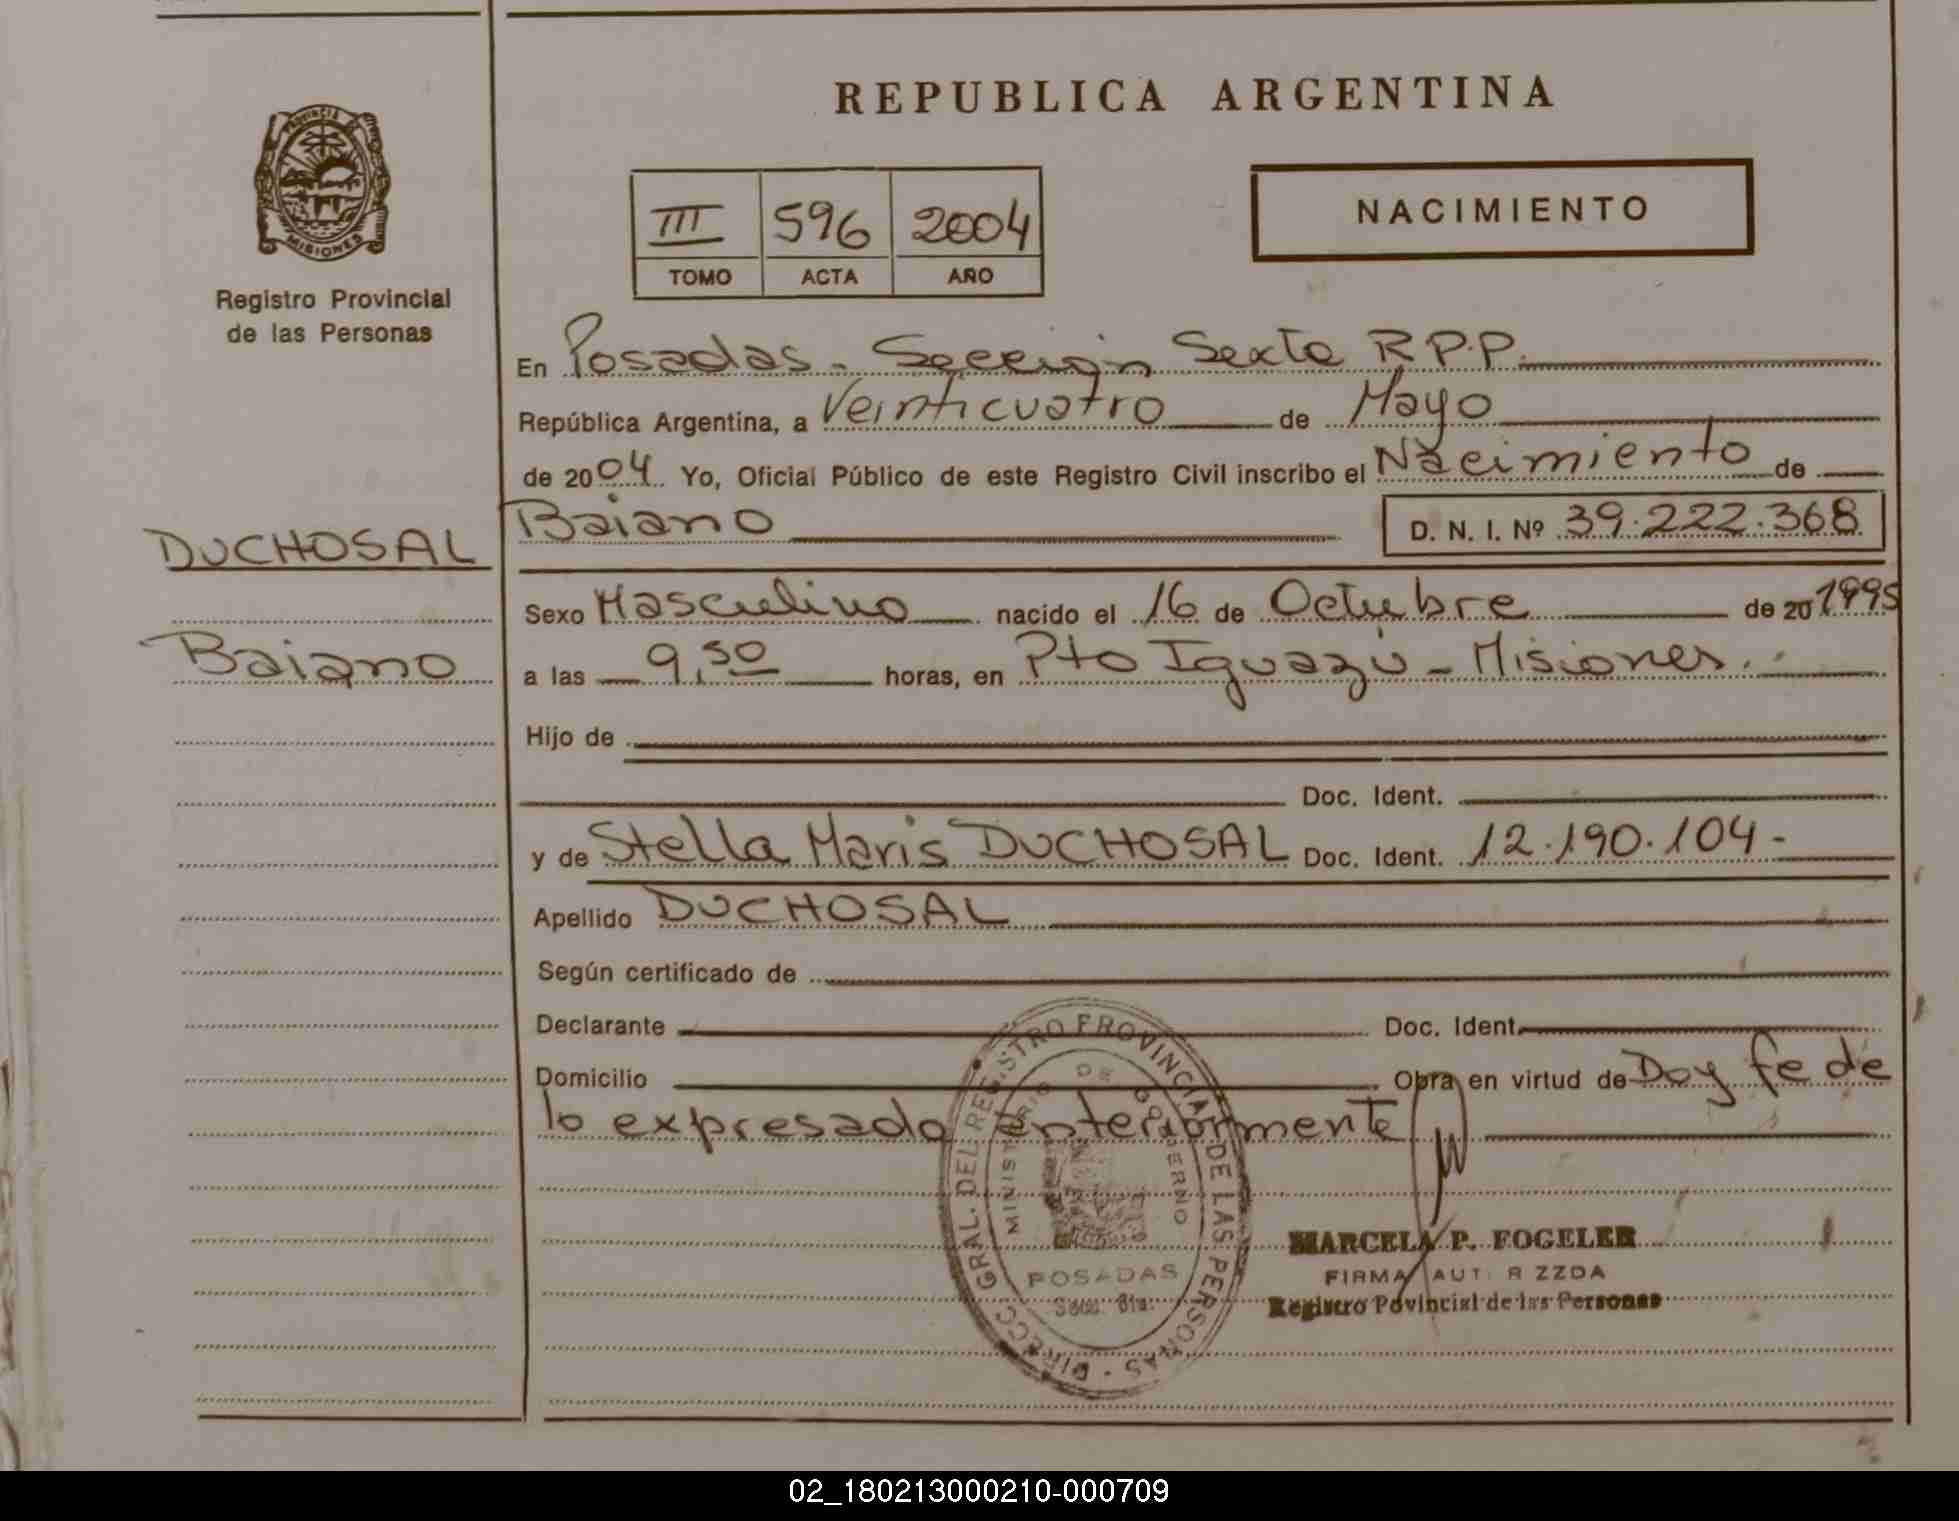 REPUBLICA ARGENTINA
PROVINCIA DE
MISIONES
Registro Provincial
de las Personas
III 596 2004
TOMO ACTA AÑO
NACIMIENTO
En Posadas - Sección Sexta R.P.P.
República Argentina, a Veinticuatro de Mayo
de 2004 Yo, Oficial Público de este Registro Civil inscribo el Nacimiento de
DUCHOSAL
Baiano
Baiano D. N. I. Nº 39.222.368
Sexo Masculino nacido el 16 de Octubre de 20 1995
a las 9,50 horas, en Pto Iguazú - Misiones.
Hijo de
Doc. Ident.
y de Stella Maris DUCHOSAL Doc. Ident. 12.190.104-
Apellido DUCHOSAL
Según certificado de
Declarante Doc. Ident.
Domicilio Obra en virtud de Doy fe de
lo expresado anteriormente
DIRECC. GRAL. DEL REGISTRO PROVINCIAL DE LAS PERSONAS
MINISTERIO DE GOBIERNO
POSADAS
Secc. 6ta.
MARCELA P. FOGELER
FIRMA AUT R ZZDA
Registro Povincial de las Personas
02_180213000210-000709